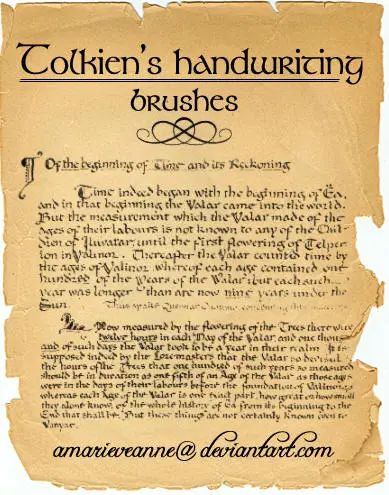 Tolkien's handwriting
brushes
Of the beginning of Time and its Reckoning
Time indeed began with the beginning of Ea,
and in that beginning the Valar came into the world.
But the measurement which the Valar made of the
ages of their labours is not known to any of the Chil-
dren of Iluvatar, until the first flowering of Telper-
ion in Valinor. Thereafter the Valar counted time by
the ages of Valinor, whereof each age contained one
hundred of the Years of the Valar; but each such
year was longer than are now nine years under the
Sun.
Now measured by the flowering of the Trees there were
twelve hours in each Day of the Valar, and one thous-
and of such days the Valar took to be a year in their realm. It is
supposed indeed by the Lore-masters that the Valar so devised
the hours of the Trees that one hundred of such years so measured
should be in duration as one fifth of an age of the Valar as those ages
were in the days of their labours before the foundation of Valinor,
whereas each Age of the Valar is one part, how great or how small
they alone know, of the whole history of Ea from its beginning to the
End that shall be. But these things are not certainly known even to
Vanyar.
amarieveanne@deviantart.com